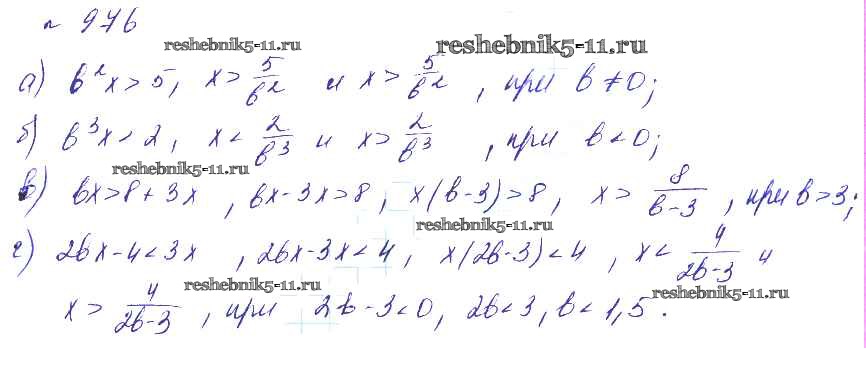 № 976
reshebnik5-11.ru reshebnik5-11.ru
а) b²x > 5, x > 5/b² и x > 5/b², при b ≠ 0;
б) b³x < 2, x < 2/b³ и x > 2/b³, при b < 0;
reshebnik5-11.ru
в) bx > 8 + 3x, bx - 3x > 8, x(b-3) > 8, x > 8/(b-3), при b > 3;
reshebnik5-11.ru
г) 2bx - 4 < 3x, 2bx - 3x < 4, x(2b-3) < 4, x < 4/(2b-3) и
reshebnik5-11.ru reshebnik5-11.ru
x > 4/(2b-3), при 2b - 3 < 0, 2b < 3, b < 1,5.